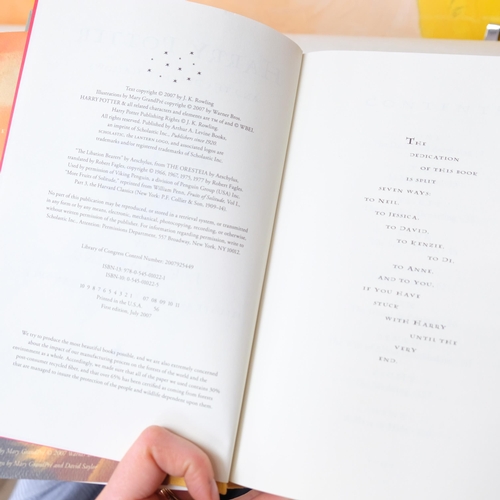 Text copyright © 2007 by J. K. Rowling
Illustrations by Mary GrandPré copyright © 2007 by Warner Bros.
HARRY POTTER & all related characters and elements are TM of and © WBEI.
Harry Potter Publishing Rights © J. K. Rowling.
All rights reserved. Published by Arthur A. Levine Books,
an imprint of Scholastic Inc., Publishers since 1920
SCHOLASTIC, the LANTERN LOGO, and associated logos are
trademarks and/or registered trademarks of Scholastic Inc.
"The Libation Bearers" by Aeschylus, from THE ORESTEIA by Aeschylus,
translated by Robert Fagles, copyright © 1966, 1967, 1975, 1977 by Robert Fagles.
Used by permission of Viking Penguin, a division of Penguin Group (USA) Inc.
"More Fruits of Solitude," reprinted from William Penn, Fruits of Solitude, Vol. I.,
Part 3, the Harvard Classics (New York: P.F. Collier & Son, 1909–14).
No part of this publication may be reproduced, or stored in a retrieval system, or transmitted
in any form or by any means, electronic, mechanical, photocopying, recording, or otherwise,
without written permission of the publisher. For information regarding permission, write to
Scholastic Inc., Attention: Permissions Department, 557 Broadway, New York, NY 10012.
Library of Congress Control Number: 2007925449
ISBN-13: 978-0-545-01022-1
ISBN-10: 0-545-01022-5
10 9 8 7 6 5 4 3 2 1 07 08 09 10 11
Printed in the U.S.A. 56
First edition, July 2007
We try to produce the most beautiful books possible, and we are also extremely concerned
about the impact of our manufacturing process on the forests of the world and the
environment as a whole. Accordingly, we made sure that all of the paper we used contains 30%
post-consumer recycled fiber, and that over 65% has been certified as coming from forests
that are managed to insure the protection of the people and wildlife dependent upon them.
by Mary GrandPré © 2007
by Mary GrandPré and David Saylor
THE
DEDICATION
OF THIS BOOK
IS SPLIT
SEVEN WAYS:
TO NEIL,
TO JESSICA,
TO DAVID,
TO KENZIE,
TO DI,
TO ANNE,
AND TO YOU,
IF YOU HAVE
STUCK
WITH HARRY
UNTIL THE
VERY
END.